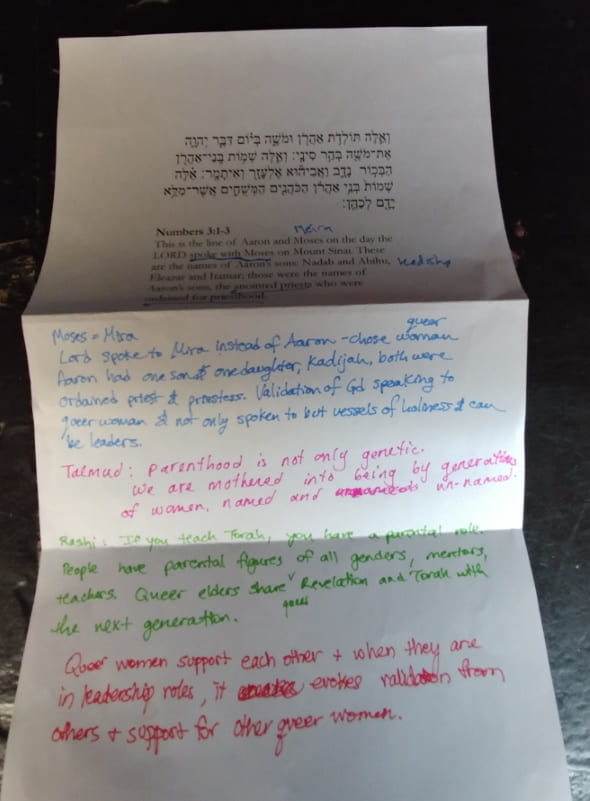 וְאֵלֶּה תּוֹלְדֹת אַהֲרֹן וּמֹשֶׁה בְּיוֹם דִּבֶּר יְהוָה
אֶת־מֹשֶׁה בְּהַר סִינָי: וְאֵלֶּה שְׁמוֹת בְּנֵי־אַהֲרֹן
הַבְּכוֹר נָדָב וַאֲבִיהוּא אֶלְעָזָר וְאִיתָמָר: אֵלֶּה
שְׁמוֹת בְּנֵי אַהֲרֹן הַכֹּהֲנִים הַמְּשֻׁחִים אֲשֶׁר־מִלֵּא
יָדָם לְכַהֵן:
Numbers 3:1-3
This is the line of Aaron and Moses on the day the
LORD spoke with Moses on Mount Sinai. These
are the names of Aaron's sons: Nadab and Abihu,
Eleazar and Itamar; those were the names of
Aaron's sons, the anointed priests who were
ordained for priesthood.
Moses = Mira
queer
Lord spoke to Mira instead of Aaron - chose woman
Aaron had one son & one daughter, Kadijah, both were
ordained priest & priestess. Validation of Gd speaking to
queer woman & not only spoken to but vessels of holiness & can
be leaders.
Talmud: parenthood is not only genetic.
We are mothered into being by generations
of women, named and un-named.
Rashi: If you teach Torah, you have a parental role.
People have parental figures of all genders, mentors,
teachers. Queer elders share Revelation and Torah with
queer
the next generation.
Queer women support each other + when they are
in leadership roles, it evokes validation from
others + support for other queer women.